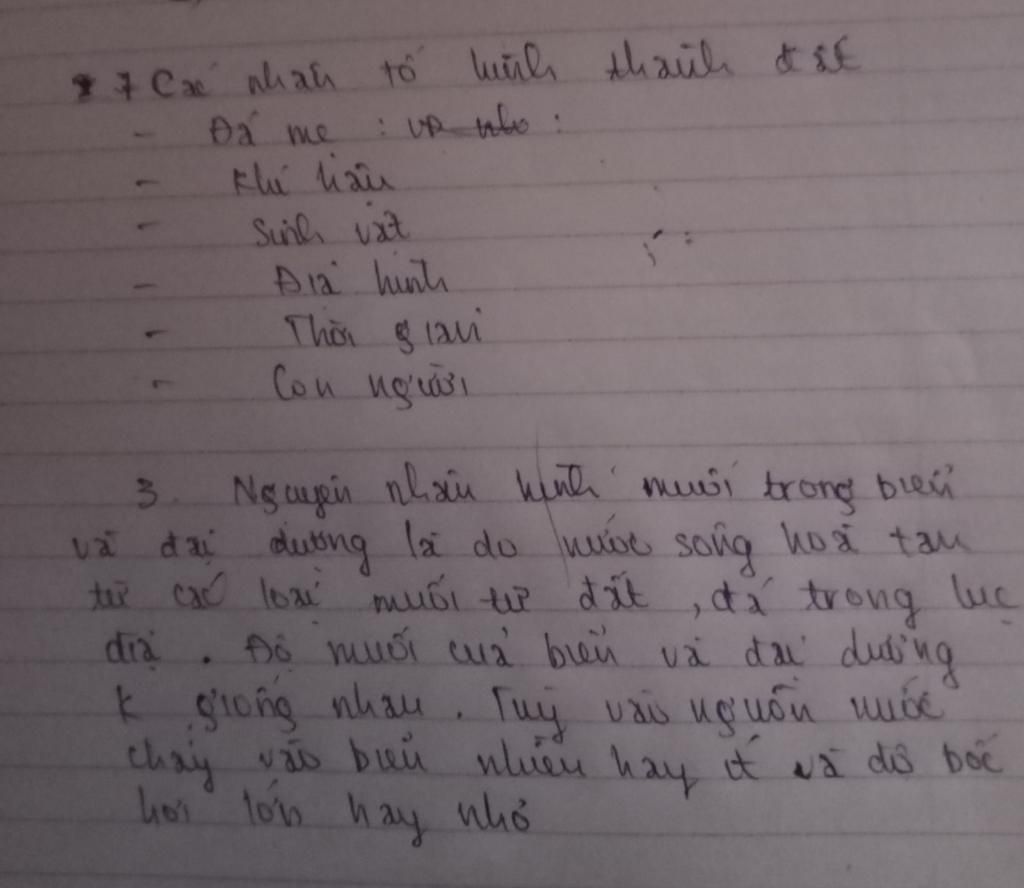 7 Các nhân tố hình thành đất
- Đá mẹ : :
- Khí hậu
- Sinh vật
- Địa hình
- Thời gian
- Con người
3. Nguyên nhân hình muối trong biển
và đại dương là do nước sông hoà tan
từ các loại muối từ đất, đá trong lục
địa. Độ muối của biển và đại dương
k giống nhau. Tuỳ vào nguồn nước
chảy vào biển nhiều hay ít và độ bốc
hơi lớn hay nhỏ